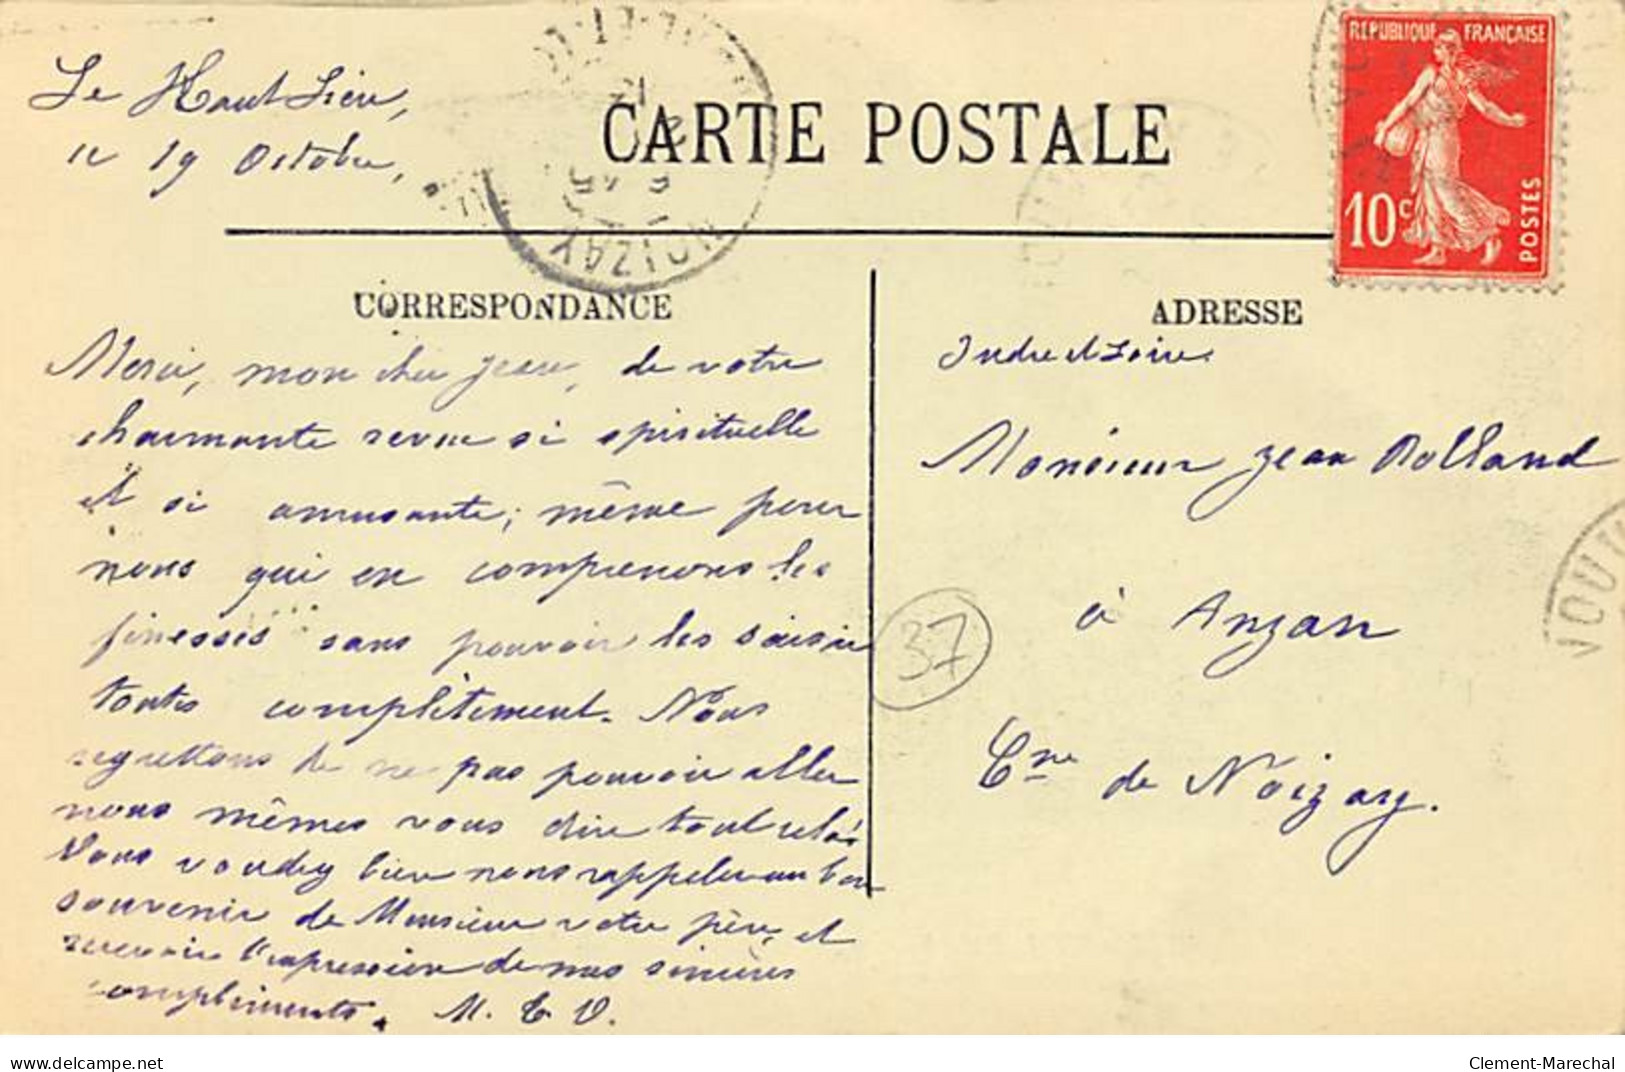 Le Haut Lieu,
le 19 Octobre,
CARTE POSTALE
NOIZAY
REPUBLIQUE FRANÇAISE
10c
POSTES
CORRESPONDANCE
Merci, mon cher Jean, de votre
charmante revue si spirituelle
et si amusante, même pour
nous qui en comprenons les
finesses sans pouvoir les saisir
toutes complètement. Nous
regrettons de ne pas pouvoir aller
nous mêmes vous dire tout cela.
Vous voudrez bien nous rappeler au bon
souvenir de Monsieur votre père, et
recevoir l'expression de nos sincères
compliments. M. T V.
ADRESSE
Indre et Loire.
Monsieur Jean Rolland
à Anzan
37
Cne de Noizay.
VOUV
delcampe.net
Clement-Marechal